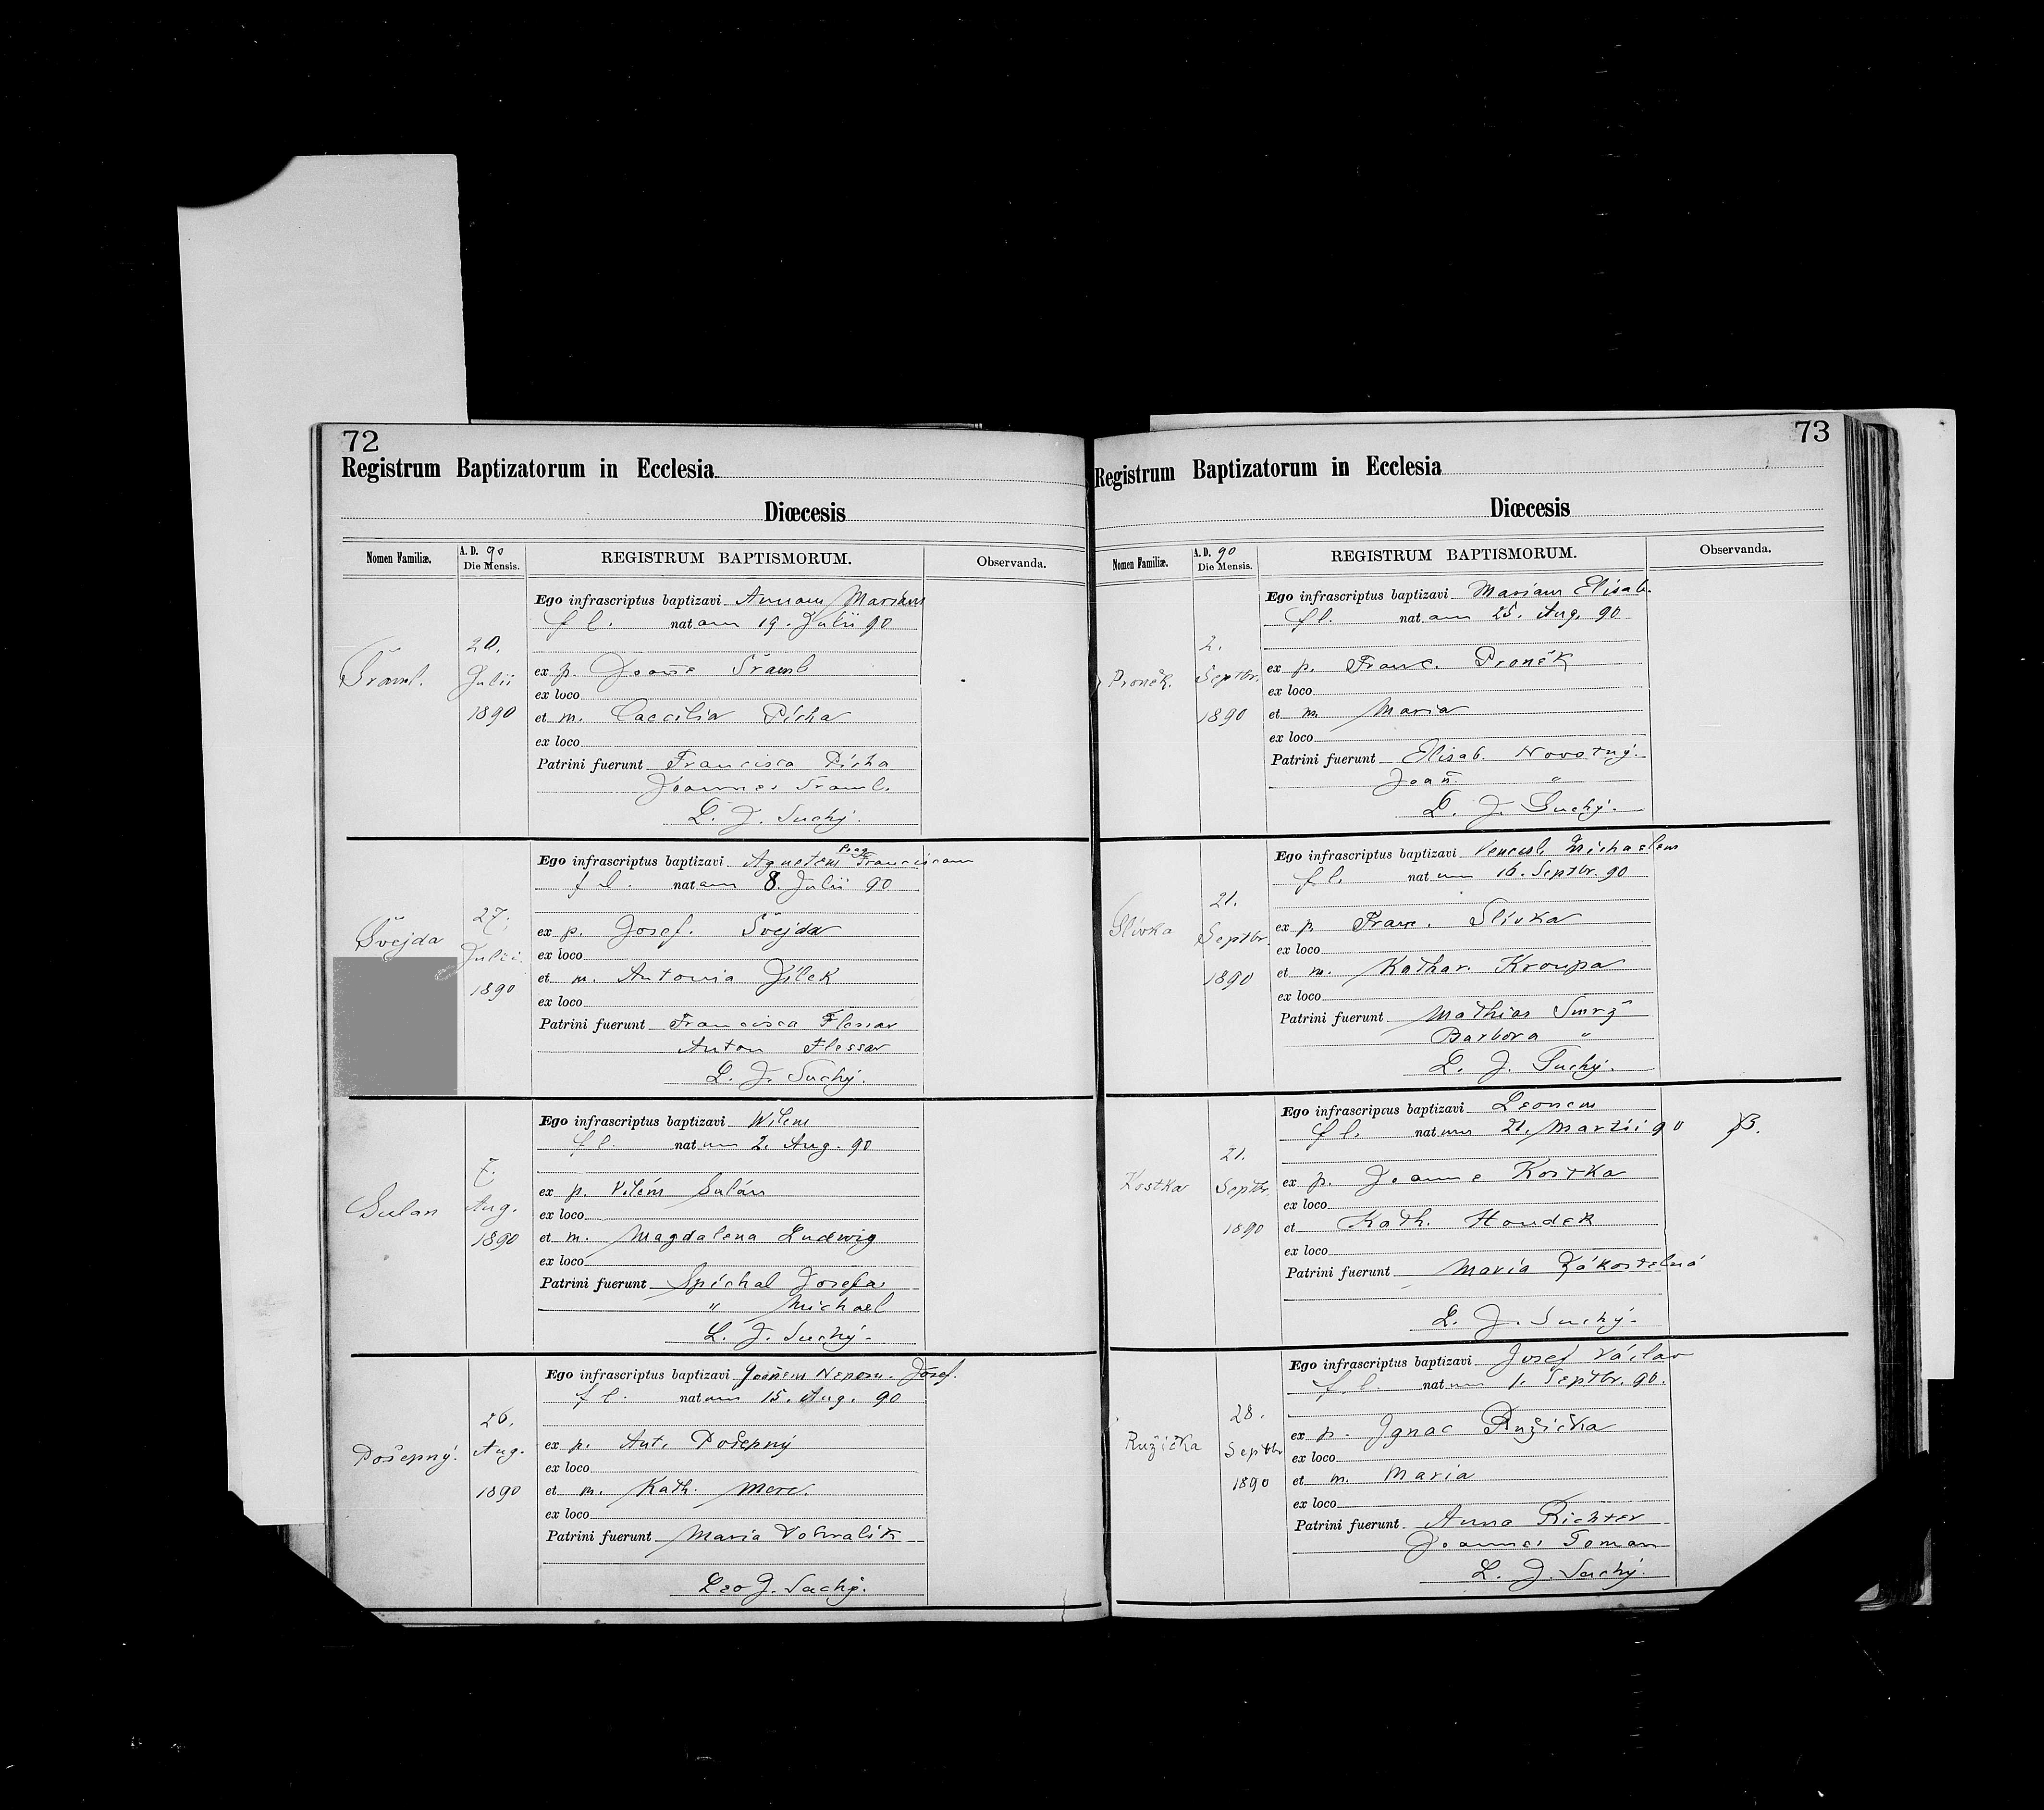 72
Registrum Baptizatorum in Ecclesia
Diœcesis
Nomen Familiæ.
A. D. 90
Die Mensis.
REGISTRUM BAPTISMORUM.
Observanda.
Šraml.
20.
Julii
1890
Ego infrascriptus baptizavi Annam Mariam
f l. natam 19. Julii 90
ex p. Joañe Šraml
ex loco
et m. Caecilia Pícha
ex loco
Patrini fuerunt Francisca Pícha
Joannes Šraml.
L. J. Suchý.
Švejda
27.
Julii.
1890
Ego infrascriptus baptizavi Agnetem Franciscam
f l. natam 8. Julii 90
ex p. Josef. Švejda
ex loco
et m. Antonia Jílek
ex loco
Patrini fuerunt Francisca Flessar
Anton Flessar
L. J. Suchý.
Sulan
7.
Aug.
1890
Ego infrascriptus baptizavi Wilem
f l. natum 2. Aug. 90
ex p. Vilém Sulán
ex loco
et m. Magdalena Ludwig
ex loco
Patrini fuerunt Spíchal Josefa
" Michael
L. J. Suchý.
Pošepný.
26.
Aug.
1890
Ego infrascriptus baptizavi Joañem Nepom. Josef.
f l. natum 15. Aug. 90
ex p. Ant. Pošepný
ex loco
et m. Kath.
ex loco
Patrini fuerunt Maria
Leo J. Suchý.
73
Registrum Baptizatorum in Ecclesia
Diœcesis
Nomen Familiæ.
A. D. 90
Die Mensis.
REGISTRUM BAPTISMORUM.
Observanda.
Proněk.
2.
Septbr.
1890
Ego infrascriptus baptizavi Mariam Elisab.
f l. natam 25. Aug. 90
ex p. Franc. Proněk
ex loco
et m. Maria
ex loco
Patrini fuerunt Elisab. Novotný.
Joañ. "
L. J. Suchý.
Slívka
21.
Septbr.
1890
Ego infrascriptus baptizavi Vencesl. Michaelem
f. l. natum 16. Septbr. 90
ex p. Franc. Slívka
ex loco
et m. Kathar. Kroupa
ex loco
Patrini fuerunt Mathias Smrž
Barbora "
L. J. Suchý.
Kostka
21.
Septbr.
1890
Ego infrascriptus baptizavi Leonem
f l. natum 21. Martii 90
B.
ex p. Joanne Kostka
ex loco
et Kath. Houdek
ex loco
Patrini fuerunt Maria Zákostelná
L. J. Suchý.
Ružička
28.
Septbr
1890
Ego infrascriptus baptizavi Josef Václav
f. l. natum 1. Septbr. 90.
ex p. Ignac Ružička
ex loco
et m. Maria
ex loco
Patrini fuerunt Anna Richter
Joannes Toman
L. J. Suchý.